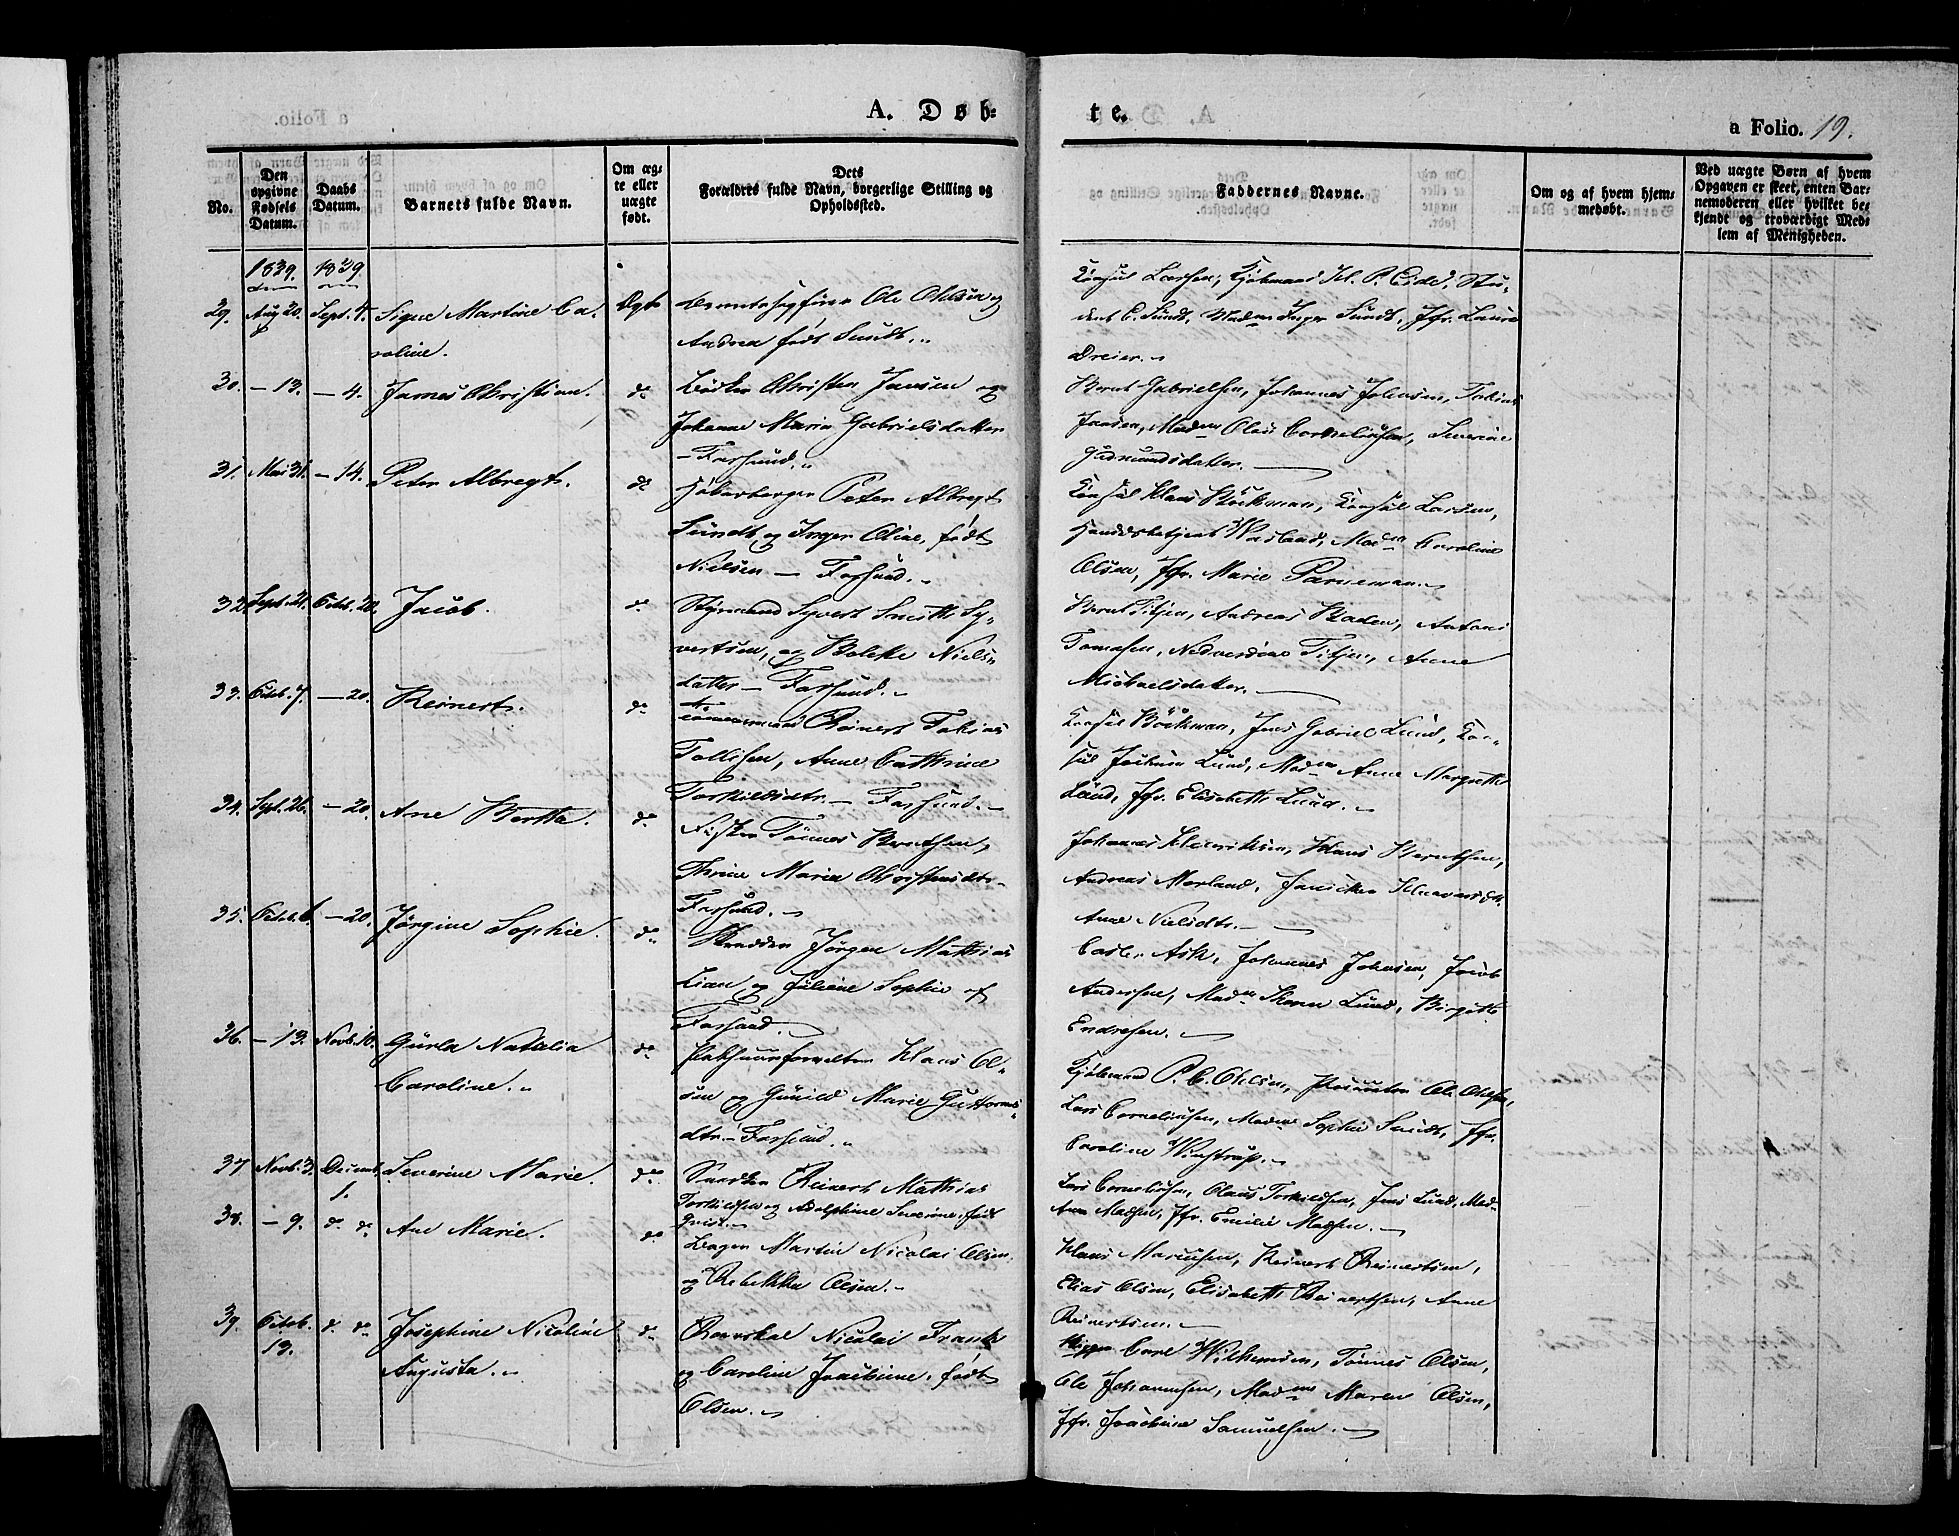 A. Døb-
te.
a Folio. 19.
No.
Den opgivne Fødsels Datum.
Daabs Datum.
Barnets fulde Navn.
Om ægte eller uægte født.
Dets Forældres fulde Navn, borgerlige Stilling og Opholdssted.
Faddernes Navne.
Om og af hvem hjemmedøbt.
Ved uægte Børn af hvem Opgaven er skeet, enten Barnemoderen eller hvilket bekjendt og troværdigt Medlem af Menigheden.
1839. 1839.
29. Aug 20. Sept. 4. Signe Martine Ca-
roline.
Ægte
Ole Ohlsen og
Andrea født Sundt.
Consul Larsen, Kjøbmand P. Eide, Stu-
dent E. Sundt, Madme Inger Sundt, Jfr. Laura
Dreier.
30. – 13. – 4. James Christian. do
Christen Jansen og
Johanne Maria Gabrielsdatter
– Farsund.
Bernt Gabrielsen, Johannes Johnsen, Tobias
Jansen, Madme Corneliusen, Severine
Gudmundsdatter.
31. Mai 31. – 14. Peter Albregt. do
Peter Albregt
Sundt og Inger Oline, født
Nielsen – Farsund.
Consul Klaus Böckman, Consul Larsen,
Madme Caroline
Olsen, Jfr. Marie
32. Sept. 21. Octob. 20. Jacob. do
Styrmand Syvert Smith Sy-
vertsen, og Boleke Niels-
datter – Farsund.
Bernt Titjen, Andreas Baden, Antoni
Tomasen, Titjen, Anne
Michaelsdatter.
33. Octob. 7. – 20. Reinert. do
Tømmermand Reinert Tobias
Tollisen, Anne Cathrine
Torkildsdtr. – Farsund.
Consul Böckman, Jens Gabriel Lund, Con-
sul Jochum Lund, Madme Anne Margrethe
Lund, Jfr. Elisabeth Lund.
34. Sept. 26. – 20. Ane Bertha. do
Fisker Tønnes Berntsen,
Thrine Maria Christensdtr.
Farsund.
Johannes Henriksen, Klaus Berntsen,
Andreas Morland, Janicken
Anne Nielsdtr.
35. Octob. 6. – 20. Jörgine Sophie. do
Skredder Jörgen Mathias
Lian og Juliane Sophie af
Farsund.
Ask, Johannes Johnsen, Jacob
Andersen, Madme Lund, Birgitte
Endresen.
36. – 13. Novb. 10. Gurla Natalia
Caroline.
do
Pakhuusforvalter Klaus Ol-
sen og Gunild Marie Guttorms-
dtr. – Farsund.
Kjöbmand P. C. Ohlsen, Ole Ohlsen,
Lars Corneliusen, Madme Sophie Sundt, Jfr.
Caroline Winstrup.
37. Novb. 3. Decemb.
1.
Severine Marie. do
Snedker Reinert Mathias
Torkildsen og Adolphine Severine, født
Qvist.
Lars Corneliusen, Olaus Torkildsen, Jens Lund, Mad.
Ane Madsen, Jfr. Emilie Madsen.
38. – 9. do do An Marie. do
Bager Martin Nicolai Olsen
og Rebekka Olsen.
Klaus Mariusen, Reinert Reinertsen,
Elias Olsen, Elisabeth Reinertsen, Anne
Reinertsen.
39. Octob.
13.
do do Josephine Nicoline
Augusta.
do
Nicolai Frank
og Caroline Joachime, født
Olsen.
Skipper Carl Wilhemsen, Tönnes Olsen,
Ole Johannesen, Madme Maren Olsen,
Jfr. Joachine Samuelsen.